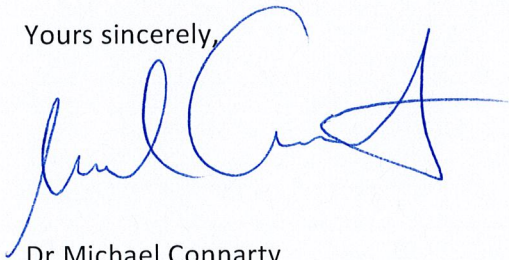 Yours sincerely,
Dr Michael Connarty